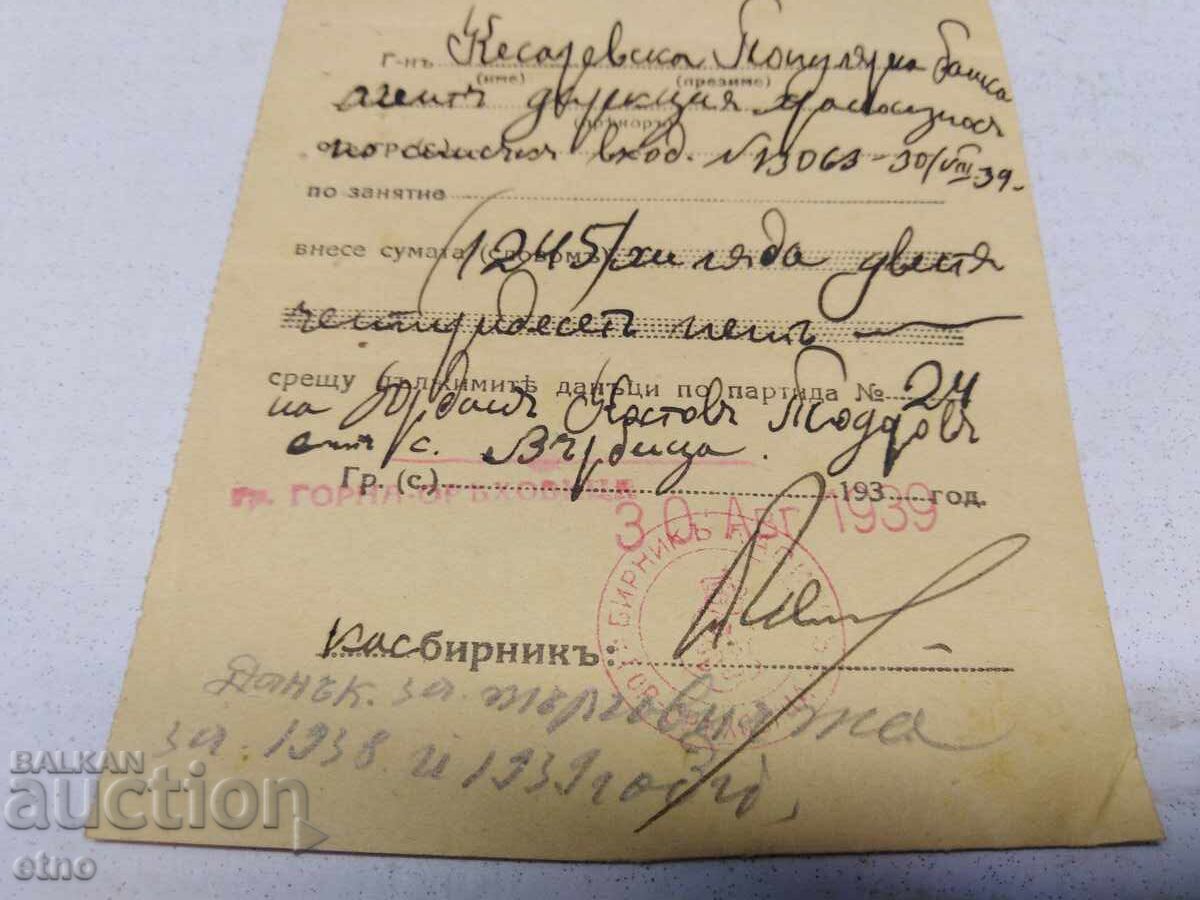 Г-нъ Кесаревска Популярна банка
(име) (презиме)
агентъ дирекция храноизносъ
по вход. № 13063 - 30/VIII 39.
по занятие
внесе сумата (словомъ) (1245) хиляда двестя
четиридесетъ петь
срещу дължимитѣ данъци по партида № 24
на Йорданъ Костовъ Тодоровъ
отъ с. Върбица.
Гр. (с.) 193 год.
гр. ГОРНА-ОРѢХОВИЦА
30 АВГ 1939
Касбирникъ:
БИРНИКЪ
Данък. за търговията на
за 1938 и 1939 год.
BALKAN
auction
etno